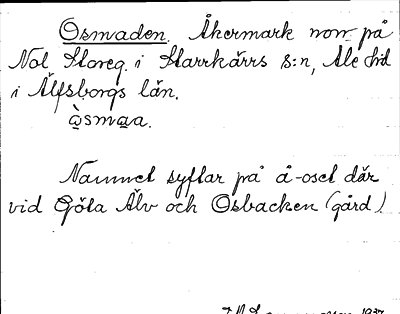 Osmaden. Åkermark norr på
Nol Storeg. i Starrkärrs s:n, Ale hd
i Älfsborgs län.
Namnet syftar på å-oset där
vid Göta Älv och Osbacken (gård)
1937